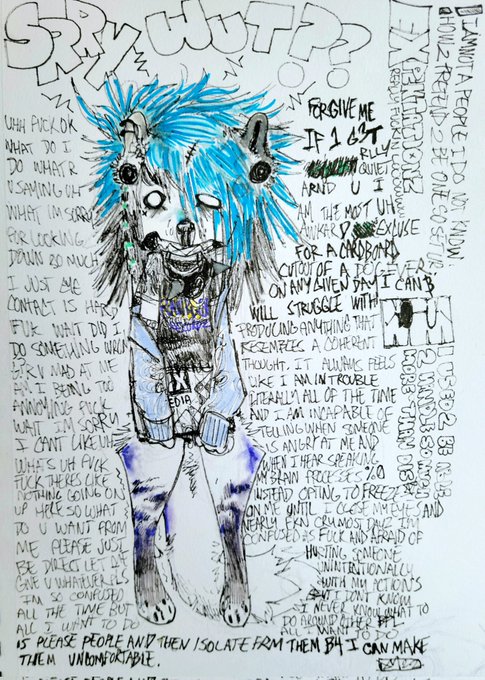 SORRY, WUT??
UHH FUCK OK
WHAT DO I
DO WHAT R
U SAYING UH
WHAT IM SORRY
FOR LOOKING
DOWN SO MUCH
I JUST EYE
CONTACT IS HARD
FUK WAIT DID I
DO SOMETHING
MAD AT ME
AM I BEING TOO
ANNOYING FUCK
WAIT IM SORRY
I CANT LIKE UH
WHATS UH FUCK
FUCK THERES LIKE
NOTHING GOING ON
UP HERE SO WHAT
TO U WANT FROM
ME PLEASE JUST
BE DIRECT LET ME
GIVE U WHATEVER PLS
IM SO CONFUSED
ALL THE TIME BUT
ALL I WANT TO DO
IS PLEASE PEOPLE AND THEN ISOLATE FRM THEM B4 I CAN MAKE
THEM UNCOMFORTABLE.
FORGIVE ME
IF I G3T
RLLY
QUIET
ARND U I
AM THE MOST UH
AWKARD EXCUSE
FOR A CARDBOARD
CUTOUT OF A DOG EVER
ON ANY GIVEN DAY I CAN B
WILL STRUGGLE WITH
PRODUCING ANYTHING THAT
RESEMBLES A COHERENT
THOUGHT. IT ALWAYS FEELS
LIKE I AM IN TROUBLE
LITERALLY ALL OF THE TIME
AND I AM INCAPABLE OF
TELLING WHEN SOMEONE
IS ANGRY AT ME AND
WHEN I HEAR SPEAKING
MY BRAIN PROCESSES %0
INSTEAD OPTING TO FREEZE
ON ME UNTIL I CLOSE MY EYES AND
NEARLY FKN CRY MOST DAYZ IM
CONFUSED AS FUCK AND AFRAID OF
HURTING SOMEONE
UNINTENTIONALLY
WITH MY ACTIONS
BUT I DONT KNOW
I NEVER KNOW WHAT TO
DO AROUND OTHER PPL
ALL I WANT TO DO
I AM NOT A PEOPLE I DO NOT KNOW
HOW 2 PRETEND 2 BE ONE